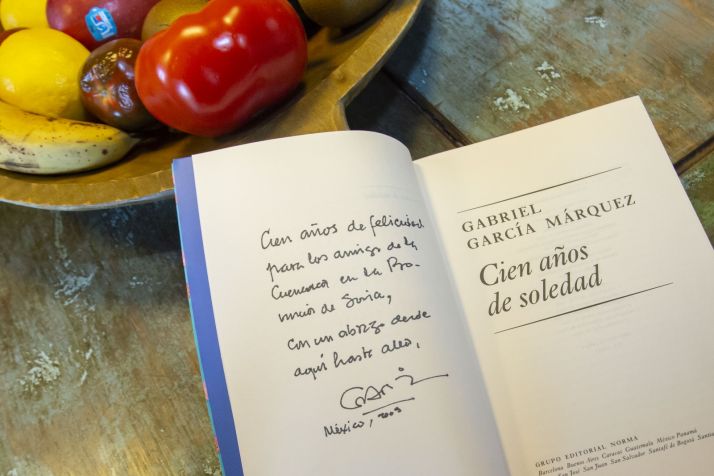 Cien años de felicidad
para los amigos de la
en la Pro-
vincia de Soria,
con un abrazo desde
aquí hasta allá,
México, 2003
GABRIEL
GARCÍA MÁRQUEZ
Cien años
de soledad
GRUPO EDITORIAL NORMA
Barcelona Buenos Aires Caracas Guatemala México Panamá
San José San Juan San Salvador Santafé de Bogotá